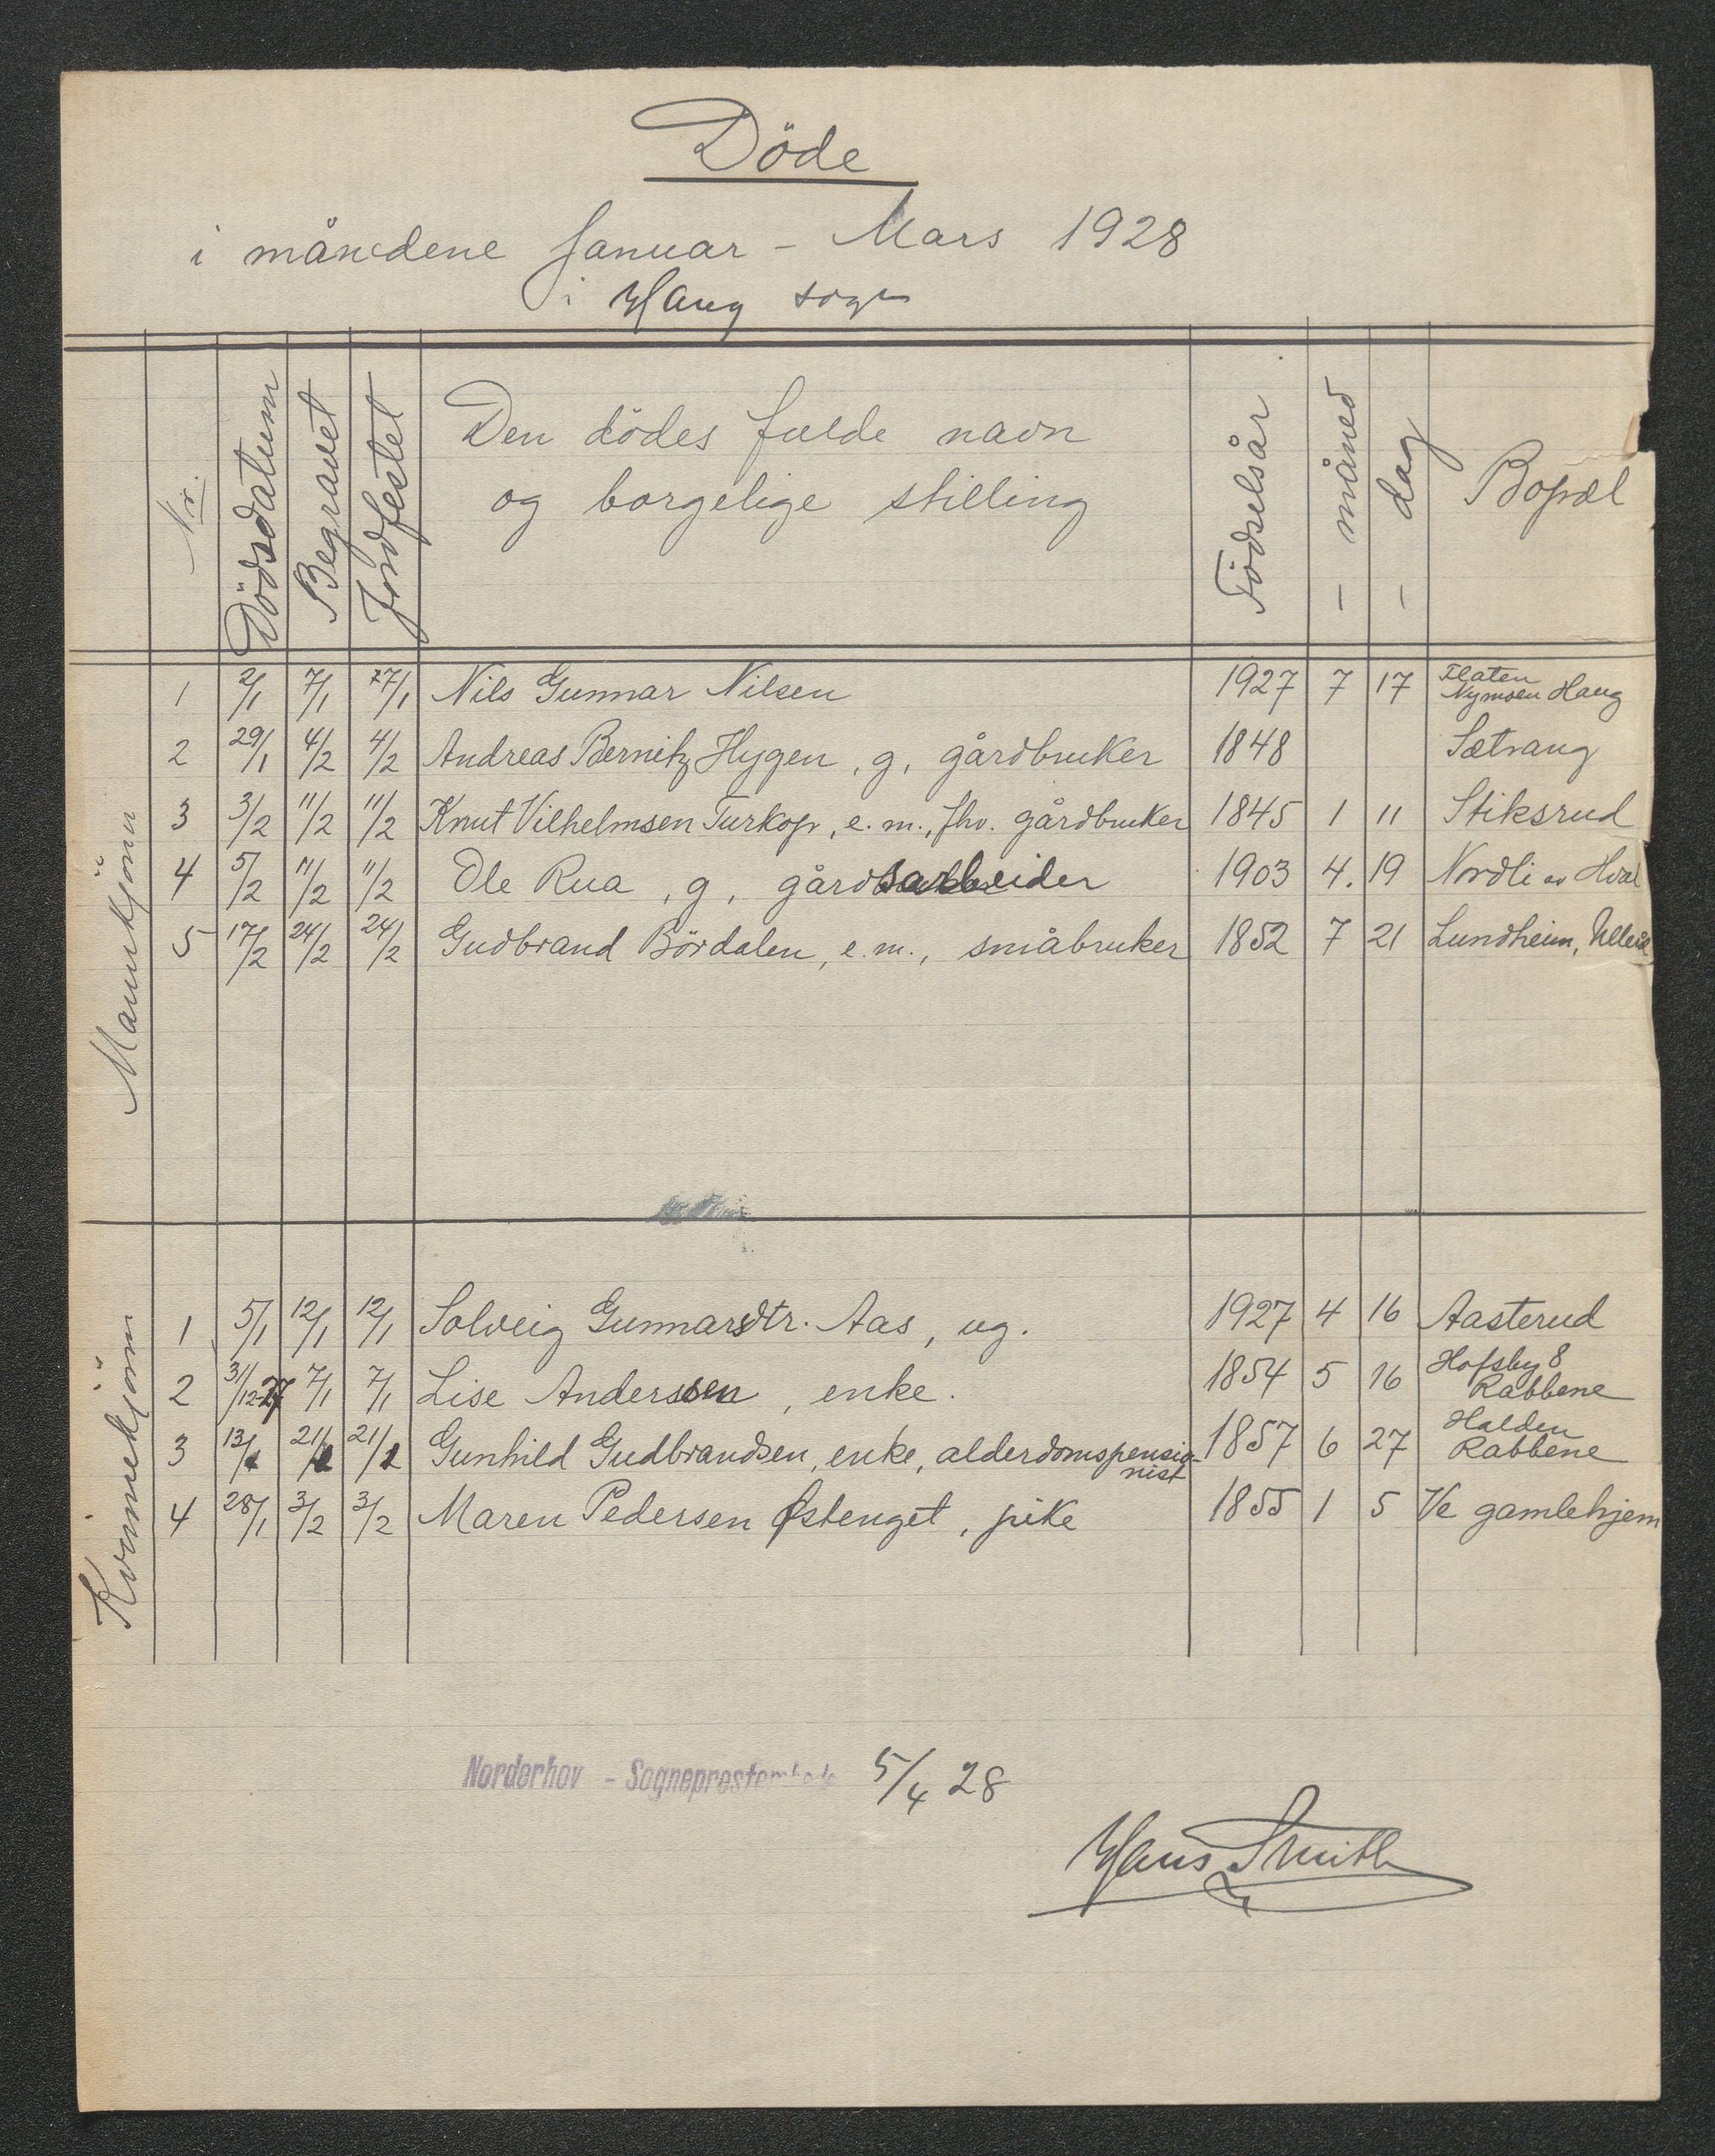 Döde
i månedene Januar - Mars 1928
i Haug sogn
Nr. Dödsdatum Begravet Jordfestet Den dödes fulde navn og borgelige stilling Födselsår - måned - dag Bopæl
Mannkjönn
1 2/1 7/1 27/1 Nils Gunnar Nilsen 1927 7 17 Flaten Nymoen Haug
2 29/1 4/2 4/2 Andreas Bernitz Hygen, g, gårdbruker 1848 Sætrang
3 3/2 11/2 11/2 Knut Vilhelmsen Turkop, e.m., fhv. gårdbruker 1845 1 11 Stiksrud
4 5/2 11/2 11/2 Ole Rua, g, gårdsarbeider 1903 4. 19 Nordli av Hval
5 17/2 24/2 24/2 Gudbrand Bördalen, e.m., småbruker 1852 7 21 Lundheim,
Kvinnekjönn
1 5/1 12/1 12/1 Solveig Gunnarsdtr. Aas, ug. 1927 4 16 Aasterud
2 31/12-27 7/1 7/1 Lise Anderssen, enke. 1854 5 16 Hofsby 8 Rabbene
3 13/1 21/1 21/1 Gunhild Gudbrandsen, enke, alderdomspensio-nist 1857 6 27 Halden Rabbene
4 28/1 3/2 3/2 Maren Pedersen Østenget, pike 1855 1 5 Ve gamlehjem
Norderhov - Sogneprestembede 5/4 28
Hans Smith